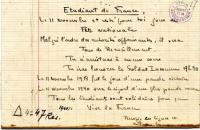 Etudiant de France,
Le 11 Novembre est resté pour toi jour de
Fête Nationale
Malgré l'ordre des autorités opprimantes, il sera
Jour de Recueillement.
Tu n'assisteras à aucun cours
Tu iras honorer le Soldat Inconnu 17h30
Le 11 Novembre 1918 fut le jour d'une grande victoire
Le 11 Novembre 1940 sera le signal d'une plus grande
Tous les étudiants sont solidaires pour que
Vive la France.